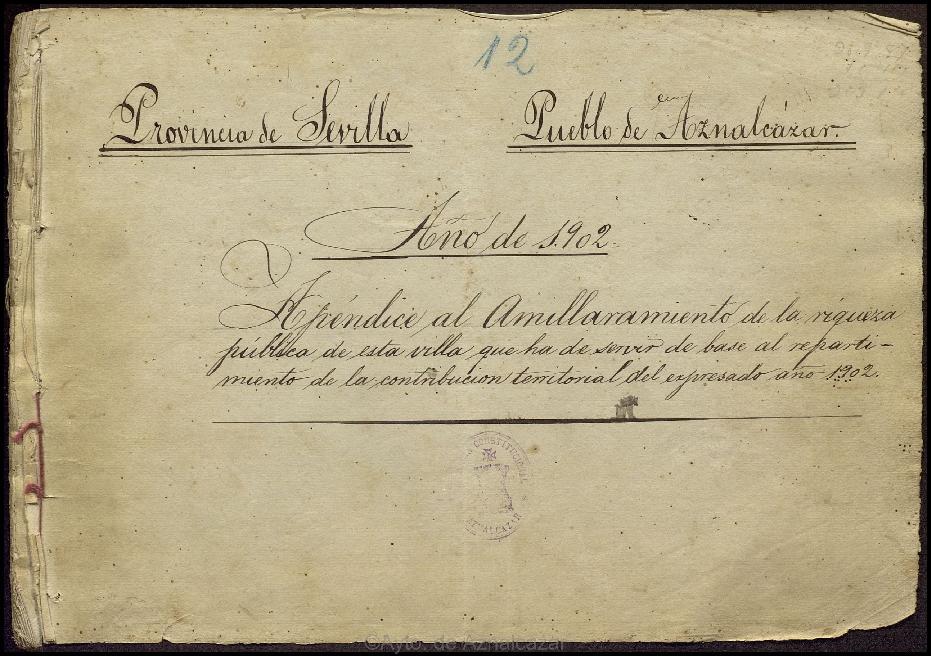 12
Provincia de Sevilla
Pueblo de Aznalcázar.
Año de 1.902.
Apéndice al Amillaramiento de la riqueza
pública de esta villa, que ha de servir de base al reparti-
miento de la contribucion territorial del expresado año 1902.
CONSTITUCIONAL
AZNALCAZAR
©Ayto. de Aznalcázar